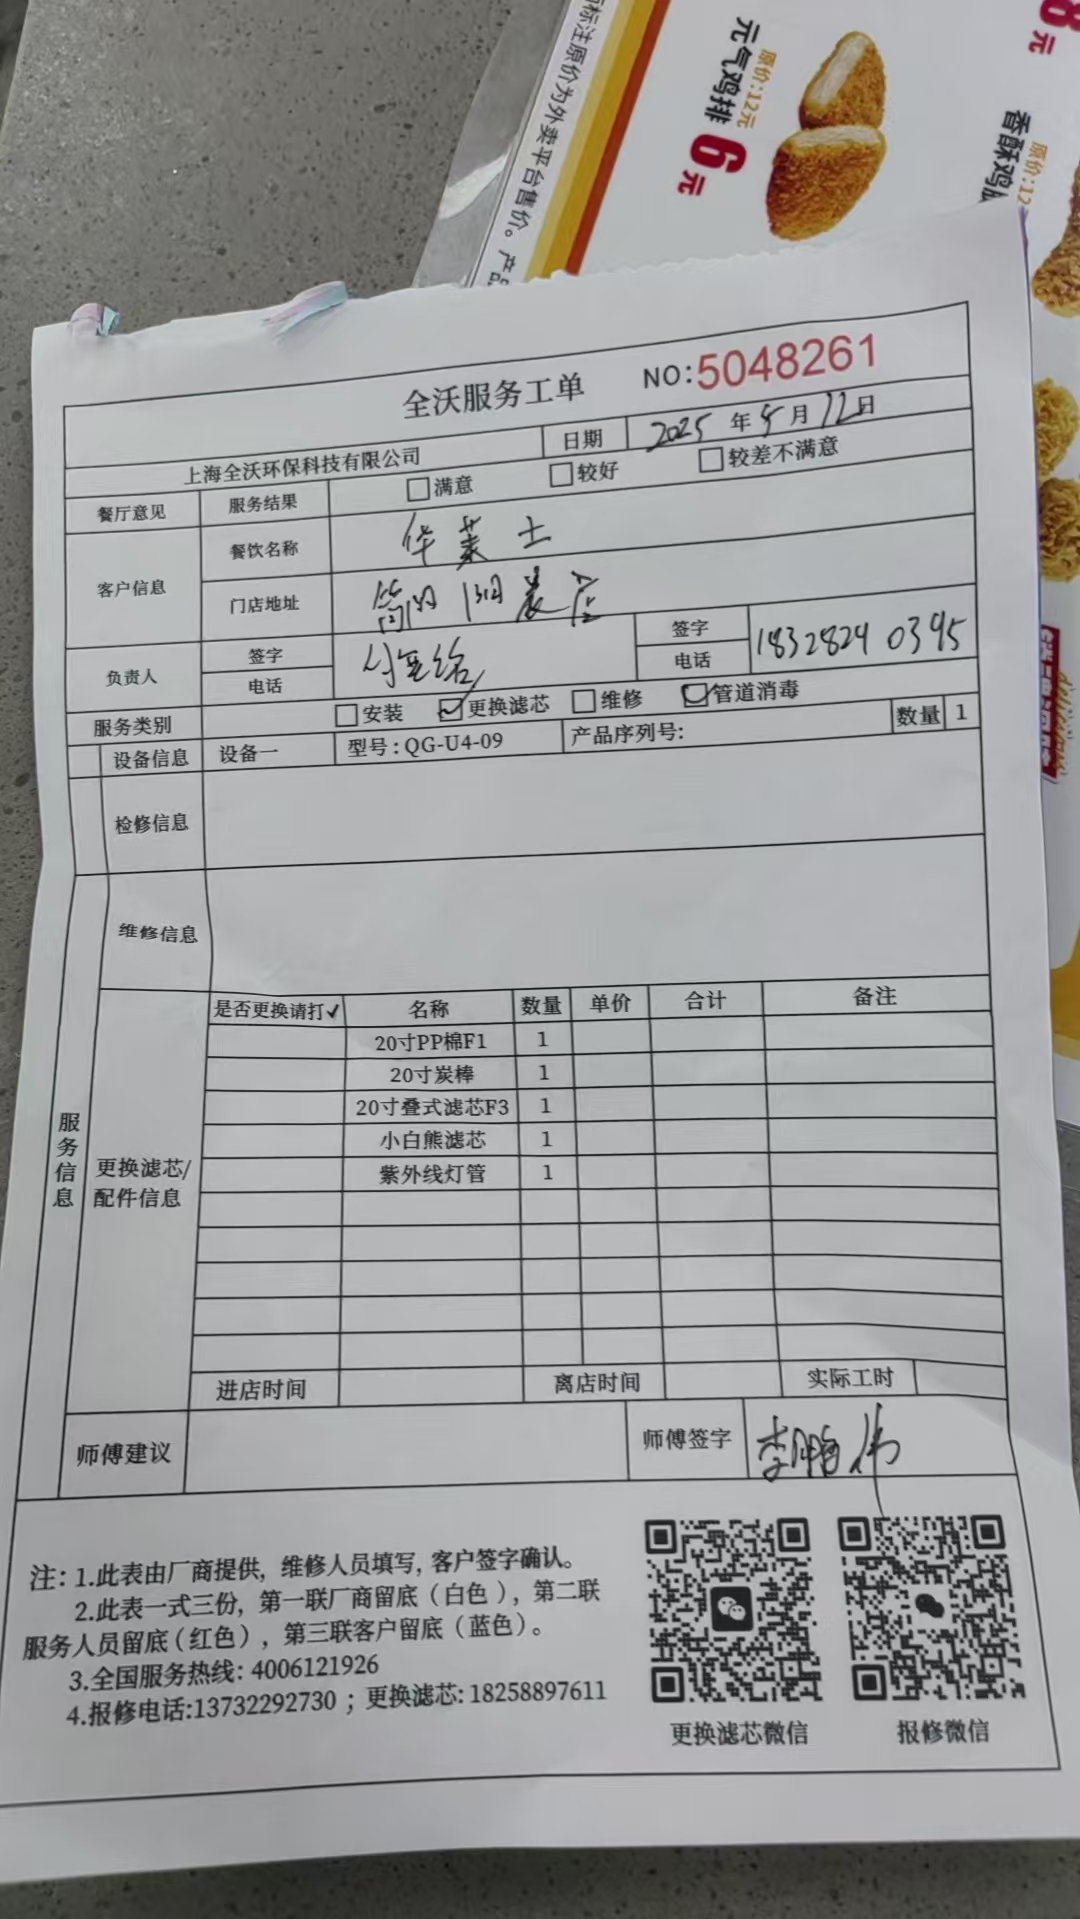 标注原价为外卖平台售价。产品
元气鸡排
原价:12元
6元
8元
香酥鸡
原价:12
全沃服务工单
NO:5048261
上海全沃环保科技有限公司 日期 2025年5月12日
餐厅意见 服务结果 满意 较好 较差不满意
客户信息 餐饮名称 华莱士
门店地址 简阳
负责人 签字 签字
电话 电话 18328240395
服务类别 安装 更换滤芯 维修 管道消毒
设备信息 设备一 型号:QG-U4-09 产品序列号: 数量 1
检修信息
维修信息
服务信息
更换滤芯/配件信息
是否更换请打✓ 名称 数量 单价 合计 备注
20寸PP棉F1 1
20寸炭棒 1
20寸叠式滤芯F3 1
小白熊滤芯 1
紫外线灯管 1
进店时间 离店时间 实际工时
师傅建议 师傅签字 李鹏伟
注:1.此表由厂商提供,维修人员填写,客户签字确认。
2.此表一式三份,第一联厂商留底(白色),第二联
服务人员留底(红色),第三联客户留底(蓝色)。
3.全国服务热线:4006121926
4.报修电话:13732292730;更换滤芯:18258897611
更换滤芯微信 报修微信